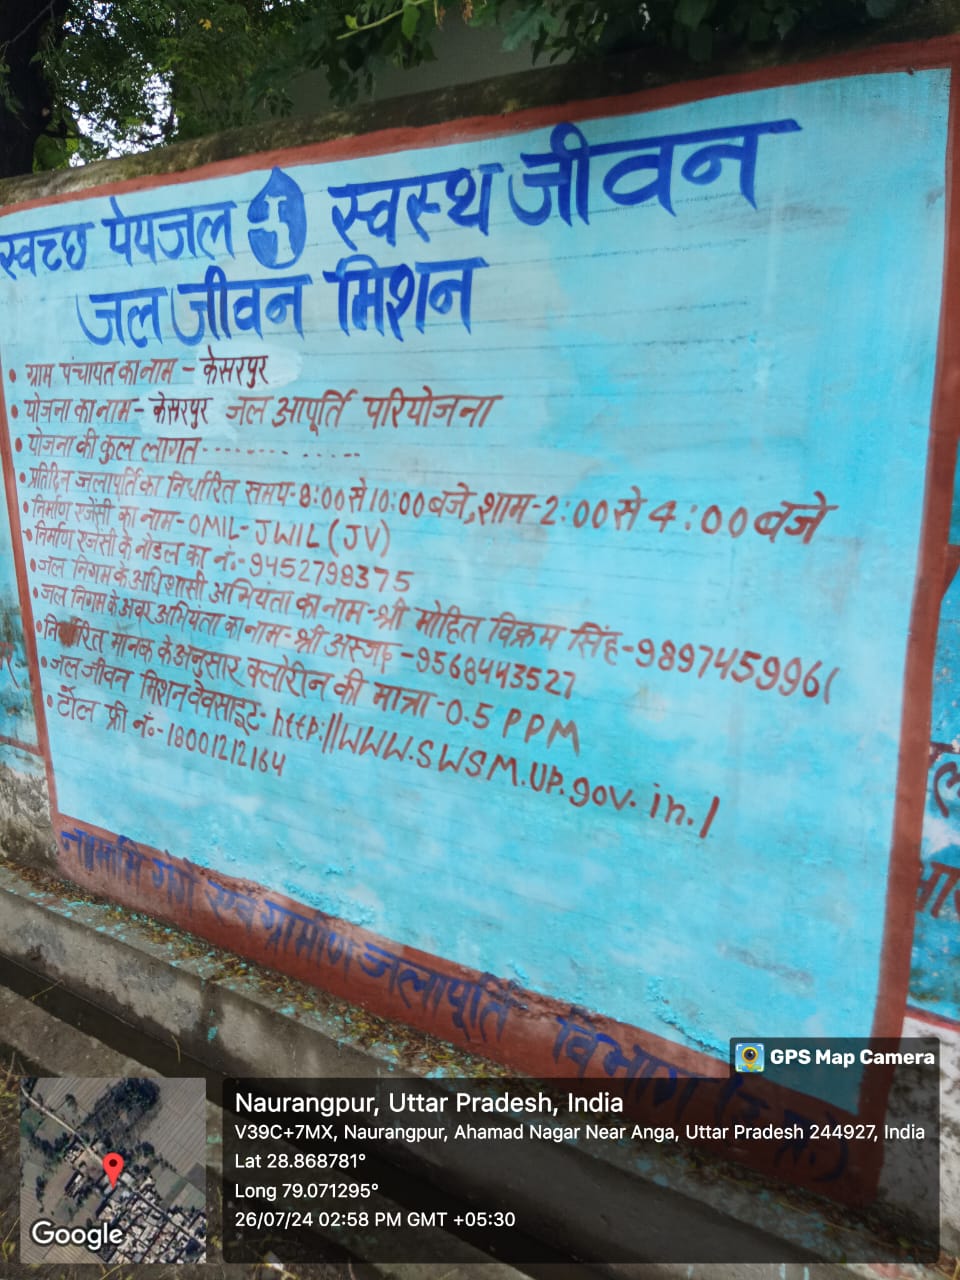 स्वच्छ पेयजल स्वस्थ जीवन
जल जीवन मिशन
• ग्राम पंचायत का नाम - केसरपुर
• योजना का नाम - केसरपुर जल आपूर्ति परियोजना
• योजना की कुल लागत-------- -----
• प्रतिदिन जलापूर्ति का निर्धारित समय-8:00 से 10:00 बजे, शाम-2:00 से 4:00 बजे
• निर्माण एजेंसी का नाम-OMIL-JWIL (JV)
• निर्माण एजेंसी के नोडल का नं.-9452799375
• जल निगम के अधिशासी अभियंता का नाम-श्री मोहित विक्रम सिंह-9897459961
• जल निगम के अवर अभियंता का नाम-श्री -9568443527
• निर्धारित मानक के अनुसार क्लोरीन की मात्रा-0.5 PPM
• जल जीवन मिशन वेवसाइट-http://WWW.SWSM.UP.gov.in./
• टोल फ्री नं.-18001212164
नमामि गंगे एवं ग्रामीण जलापूर्ति विभाग (उ.प्र.)
GPS Map Camera
Naurangpur, Uttar Pradesh, India
V39C+7MX, Naurangpur, Ahamad Nagar Near Anga, Uttar Pradesh 244927, India
Lat 28.868781°
Long 79.071295°
26/07/24 02:58 PM GMT +05:30
Google